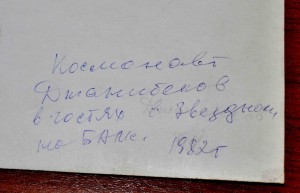 Космонавт
Джанибеков
в гостях в Звездном,
на БАМе. 1982г